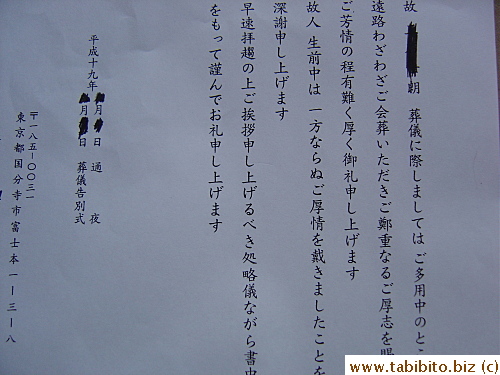 故 朝 葬儀に際しましては ご多用中のとこ
遠路わざわざご会葬いただきご鄭重なるご厚志を賜
ご芳情の程有難く厚く御礼申し上げます
故人 生前中は 一方ならぬご厚情を戴きましたことを
深謝申し上げます
早速拝趨の上ご挨拶申し上げるべき処略儀ながら書中
をもって謹んでお礼申し上げます
平成十九年 月 日 通 夜
月 日 葬儀告別式
〒一八五ー〇〇三一
東京都国分寺市富士本一ー三ー八
www.tabibito.biz (c)